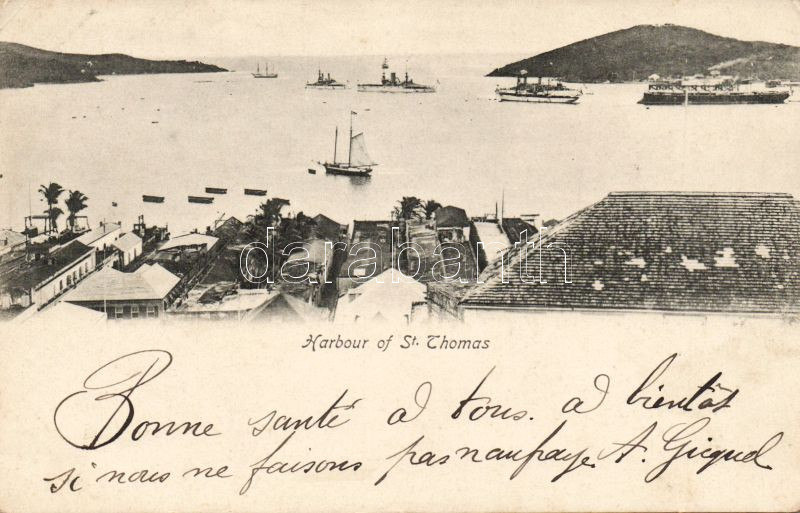 darabanth
Harbour of St. Thomas
Bonne santé a tous. a bientôt
si nous ne faisons pas naufpaye. A. Gicquel